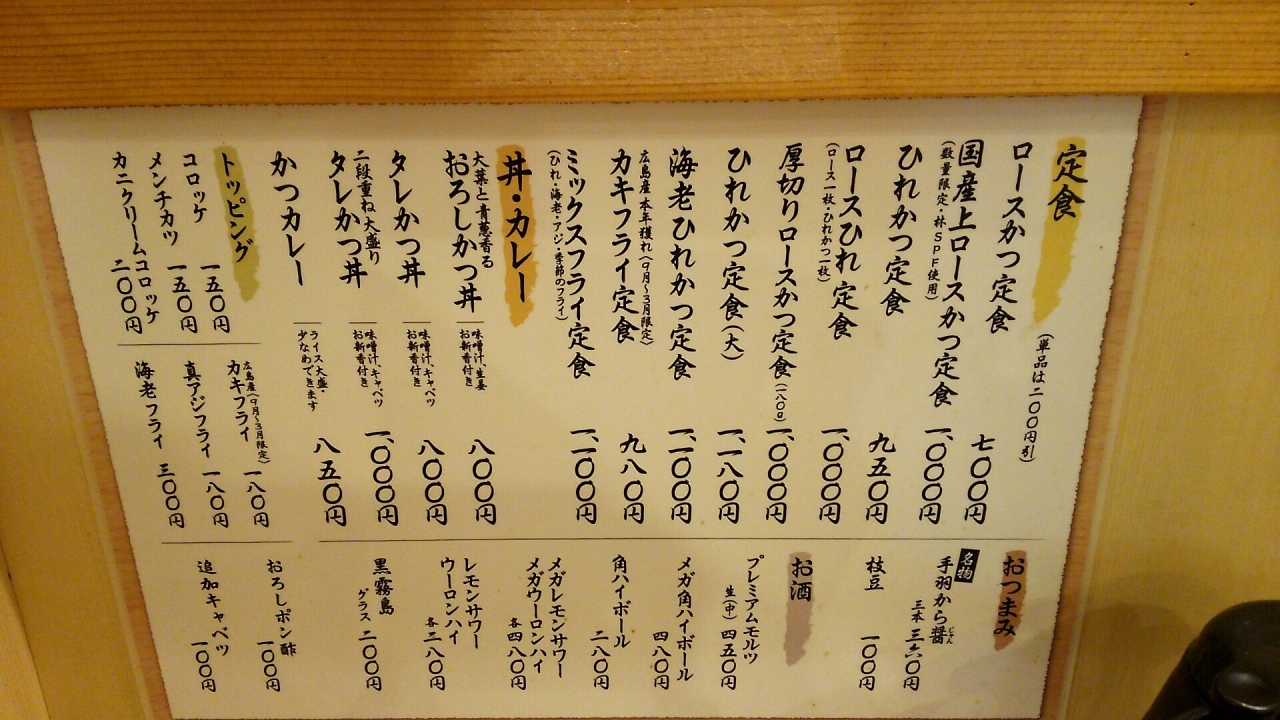 定食
(単品は二〇〇円引)
ロースかつ定食
七〇〇円
国産上ロースかつ定食
(数量限定・林SPF使用)
一、〇〇〇円
ひれかつ定食
九五〇円
ロースひれ定食
(ロース一枚・ひれかつ一枚)
一、〇〇〇円
厚切りロースかつ定食(一八〇g)
一、〇〇〇円
ひれかつ定食(大)
一、一八〇円
海老ひれかつ定食
一、一〇〇円
広島産本年穫れ(9月〜3月限定)
カキフライ定食
九八〇円
ミックスフライ定食
(ひれ・海老・アジ・季節のフライ)
一、一〇〇円
丼・カレー
大葉と青葱香る
おろしかつ丼
味噌汁、生姜
お新香付き
八〇〇円
タレかつ丼
味噌汁、キャベツ
お新香付き
八〇〇円
二段重ね大盛り
タレかつ丼
味噌汁、キャベツ
お新香付き
一、〇〇〇円
かつカレー
ライス大盛・
少なめできます
八五〇円
トッピング
コロッケ
一五〇円
メンチカツ
一五〇円
カニクリームコロッケ
二〇〇円
広島産(9月〜3月限定)
カキフライ
一八〇円
真アジフライ
一八〇円
海老フライ
三〇〇円
おろしポン酢
一〇〇円
追加キャベツ
一〇〇円
おつまみ
名物
手羽から醤
じゃん
三本 三六〇円
枝豆
一〇〇円
お酒
プレミアムモルツ
生(中) 四五〇円
メガ角ハイボール
四八〇円
角ハイボール
二八〇円
メガレモンサワー
メガウーロンハイ
各四八〇円
レモンサワー
ウーロンハイ
各二八〇円
黒霧島
グラス 二〇〇円